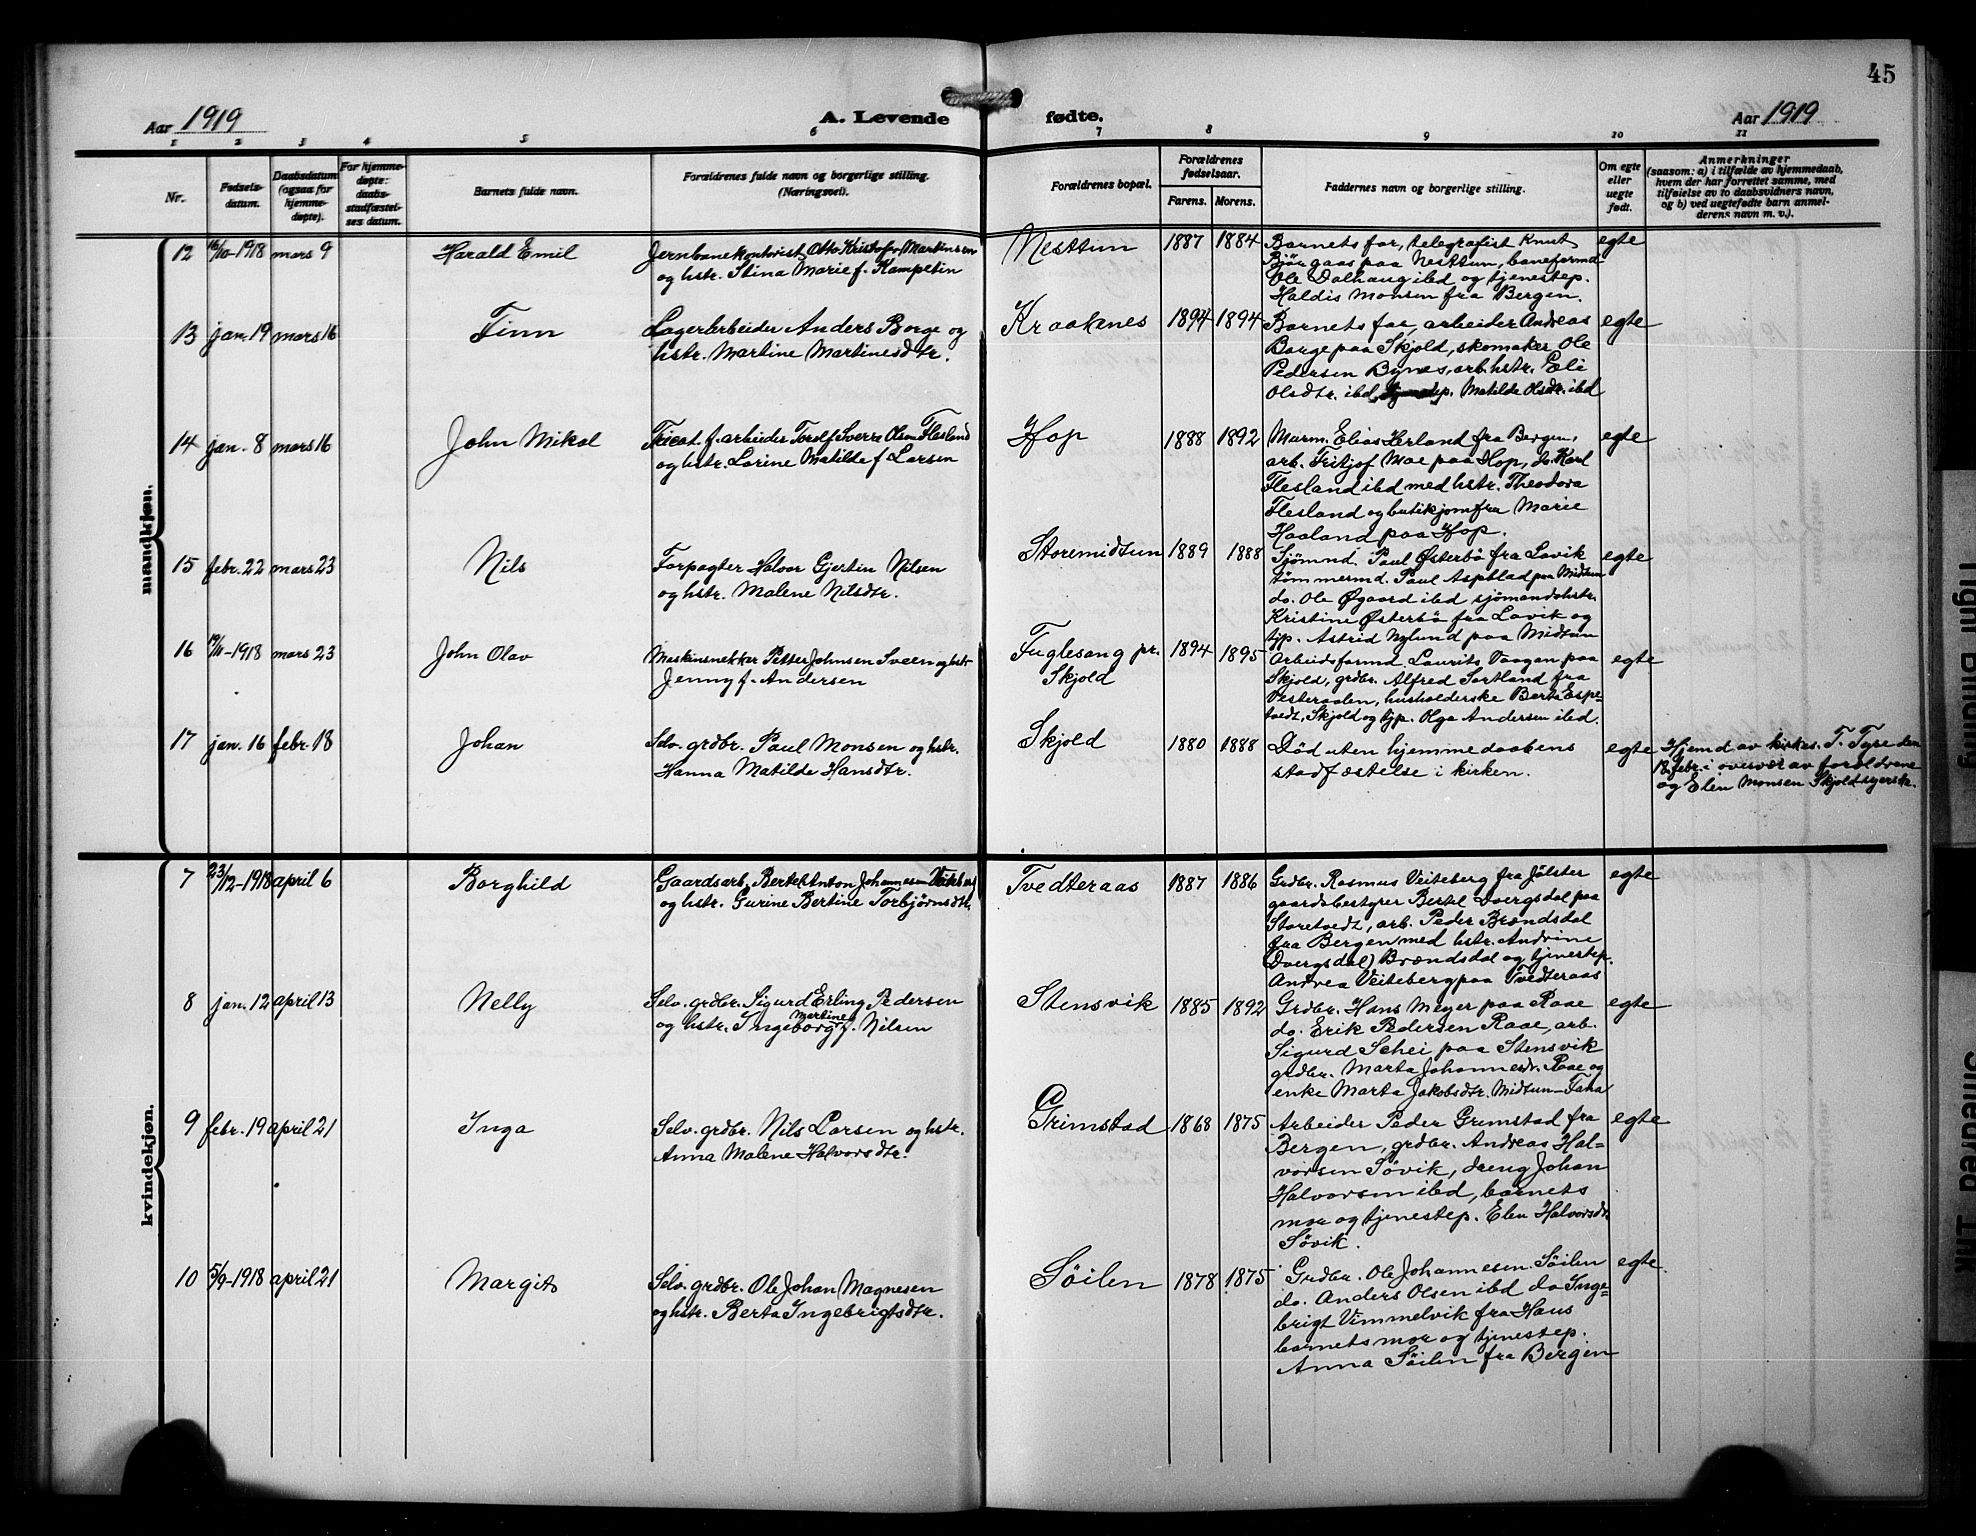 45
Aar 1919
A. Levende fødte.
Aar 1919
1 2 3 4 5 6 7 8 9 10 11
Nr.
Fødsels-
datum.
Daabsdatum
(ogsaa for
hjemme-
døpte).
For hjemme-
døpte:
daabs-
stadfæstel-
ses datum.
Barnets fulde navn.
Forældrenes fulde navn og borgerlige stilling.
(Næringsvei).
Forældrenes bopæl.
Forældrenes
fødselsaar.
Farens. Morens.
Faddernes navn og borgerlige stilling.
Om egte
eller
uegte
født.
Anmerkninger
(saasom: a) i tilfælde av hjemmedaab,
hvem der har forrettet samme, med
tilføielse av to daabsvidners navn,
og b) ved uegtefødte barn anmel-
derens navn m. v.).
mandkjøn.
12 16/10-1918 mars 9 Harald Emil
Jernbanekontorist Otto Kristofer Martinsen
og hstr. Stina Marie f. Kampetin
Nesttun 1887 1884
Barnets far, telegrafist Knut
Bjørgaas paa Nesttun, baneformd
Ole Dalhaug ibd og tjenestep.
Haldis Monsen fra Bergen.
egte
13 jan. 19 mars 16 Finn
Lagerarbeider Anders Borge og
hstr. Martine Martinesdtr.
Kraakenes 1894 1894
Barnets far, arbeider Andreas
Borge paa Skjold, skomaker Ole
Pedersen Bynes, arb.hstr. Eli
Olsdtr. ibd, tjenestep. Matilde Olsdtr. ibd
egte
14 jan. 8 mars 16 John Mikal
Tricot. f. arbeider Torolf Sverre Olsen Flesland
og hstr. Lorine Matilde f Larsen
Hop 1888 1892
Murm. Elias Herland fra Bergen,
arb. Fritjof Moe paa Hop, do. Karl
Flesland ibd med hstr. Theodora
Flesland og butikjomfru Marie
Haaland paa Hop.
egte
15 febr. 22 mars 23 Nils
Forpagter Halvor Gjertin Nilsen
og hstr. Malene Nilsdtr.
Storemidtun 1889 1888
Sjömnd. Paul Østerbö fra Lavik
tömmermd. Paul Aspblad paa Midtun
do. Ole Øgaard ibd sjömandshstr.
Kristine Østerbö fra Lavik og
tjp. Astrid Nylund paa Midtun
egte
16 19/11-1918 mars 23 John Olav
Maskinsnekker Petter Johnsen Sveen og hstr
Jenny f. Andersen
Fuglesang pr.
Skjold
1894 1895
Arbeidsformd. Laurits Vaagan paa
Skjold, grdbr. Alfred Sortland fra
Vesteraalen, husholderske Berta Espe-
tvedt, Skjold og tjp. Olga Andersen ibd.
egte
17 jan. 16 febr. 18 Johan
Selv. grdbr. Paul Monsen og hstr.
Hanna Matilde Hansdtr.
Skjold 1880 1888
Död uten hjemmedaabens
stadfæstelse i kirken.
egte
Hjemd av kirkes. T. Tyse den
18 febr. i overvær av forældrene
og Elen Monsen Skjold syerske.
kvindekjøn.
7 23/12-1918 april 6 Borghild
Gaardsarb. Bertel Anton Johannesen Veiteberg
og hstr. Gurine Bertine Torbjørnsdtr.
Tvedteraas 1887 1886
Grdbr. Rasmus Veiteberg fra Jölster
gaardsbestyrer Bertel Dvergsdal paa
Storetvedt, arb. Peder Brændsdal
fra Bergen med hstr. Andrine
Dvergsdal) Brændsdal og tjenestep.
Andrea Veiteberg paa Tvedteraas
egte
8 jan. 12 april 13 Nelly
Selv. grdbr. Sigurd Erling Pedersen
og hstr. Ingeborg Martine f. Nilsen
Stensvik 1885 1892
Grdbr. Hans Meyer paa Raae
do. Erik Pedersen Raae, arb.
Sigurd Schei paa Stensvik
grdbr. Marta Johannesdtr. Raae og
enke Marta Jakobsdtr. Midtun-Fana
egte
9 febr. 19 april 21 Inga
Selv. grdbr. Nils Larsen og hstr.
Anna Malene Halvorsdtr.
Grimstad 1868 1875
Arbeider Peder Grimstad fra
Bergen, grdbr. Andreas Hal-
vorsen Sövik, dreng Johan
Halvorsen ibd, barnets
mor og tjenestep. Elen Halvorsdtr.
Sövik.
egte
10 5/9-1918 april 21 Margit
Selv. grdbr. Ole Johan Magnesen
og hstr. Berta Ingebrigtsdtr.
Söilen 1878 1875
Grdbr. Ole Johannesen Söilen
do. Anders Olsen ibd do Inge-
brigt Vimmelvik fra Haus
barnets mor og tjenestep.
Anna Söilen fra Bergen
egte